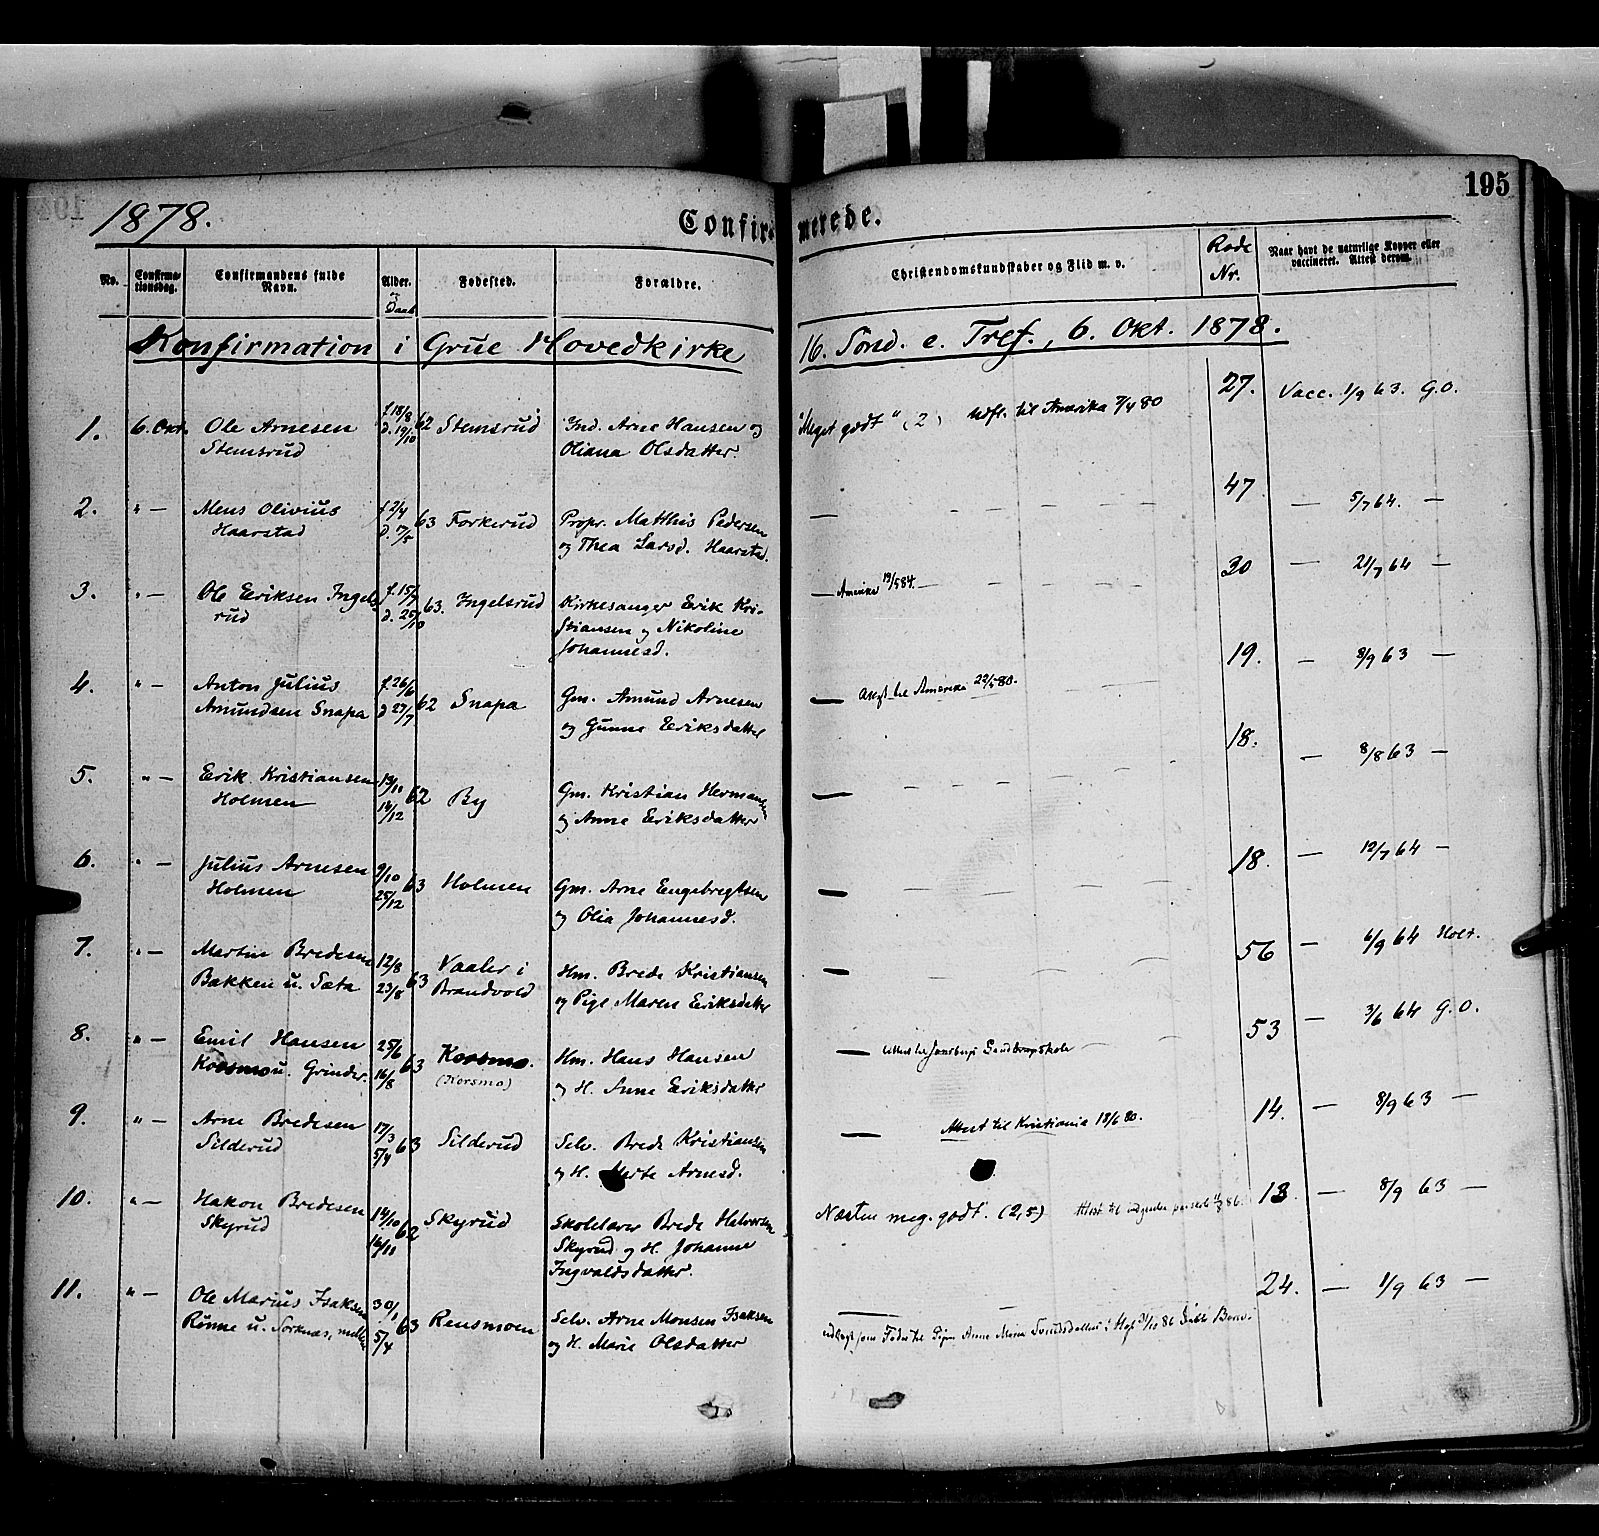 195
1878.
Confir merede.
No.
Confirma-
tionsdag.
Confirmandens fulde
Navn.
Alder.
og
Daab
Fødested.
Forældre.
Christendomskundskaber og Flid m. v.
Rode
Nr.
Naar havt de naturlige Kopper eller
vaccineret. Attest derom.
Konfirmation i Grue Hovedkirke 16. Sønd. e. Tref., 6. Okt. 1878.
1. 6. Okt. Ole Arnesen f. 18/8 62 Stemsrud Ind. Arne Hansen og "Meget godt" (2) Udfl. til Amerika 7/4 80 27. Vacc. 1/9 63. G.O.
Stemsrud d. 19/10 Oliana Olsdatter.
2. " — Mens Olivius f 2/4 63 Forkerud Propr. Matthis Pedersen — 47 — 5/7 64. —
Haarstad d. 17/5 og Thea Larsd. Haarstad.
3. " — Ole Eriksen Ingels- f. 15/9 63. Ingelsrud Kirkesanger Erik Kri- — Amerika 19/5 84. — 30 — 21/7 64 —
rud d. 25/10 stiansen og Nikoline
Johannesd.
4. " — Anton Julius f. 26/6 62 Snapa Gm. Amund Arnesen — til Amerika 22/5 80. 19. — 8/9 63 —
Amundsen Snapa d 27/7 og Gunne Eriksdatter
5. " — Erik Kristiansen 13/11 62 By Gm. Kristian Hermansen — 18. — 8/8 63 —
Holmen 14/12 og Anne Eriksdatter
6. " — Julius Arnesen 9/10 63 Holmen Gm. Arne Engebregtsen — 18. — 12/7 64 —
Holmen 25/12 og Olia Johannesd.
7. " — Martin Bredesen 12/8 63 Vaaler i Hm. Brede Kristiansen — 56 — 6/9 64 Holt.
Bakken u. Sæta 23/8 Brandvold og Pige Maren Eriksdatter
8. " — Emil Hansen 25/6 63 Korsmo. Hm. Hans Hansen — 53 — 3/6 64 G.O.
Korsmo u. Grinder. 16/8 (Korsmo) og H. Anne Eriksdatter
9. " — Arne Bredesen 17/3 63 Silderud Selv. Brede Kristiansen — Attest til Kristiania 18/6 80. 14. — 8/9 63 —
Silderud 5/4 og H. Marte Arnesd.
10. " — Hakon Bredesen 14/10 62 Skyrud Skolelærer Brede Halvorsen Næsten meg. godt. (2,5) Attest til 86. 13. — 8/9 63 —
Skyrud 16/11 Skyrud og H. Johanne
Ingvaldsdatter.
11. " — Ole Marius Isaksen 30/1 63 Rensmoen Selv. Arne Monsen Isaksen — 24. — 1/9 63 —
Rønne u. Sorknæs, mell. 5/4 og H. Marie Olsdatter udlagt som Fader til Pigen Anne Marie 86